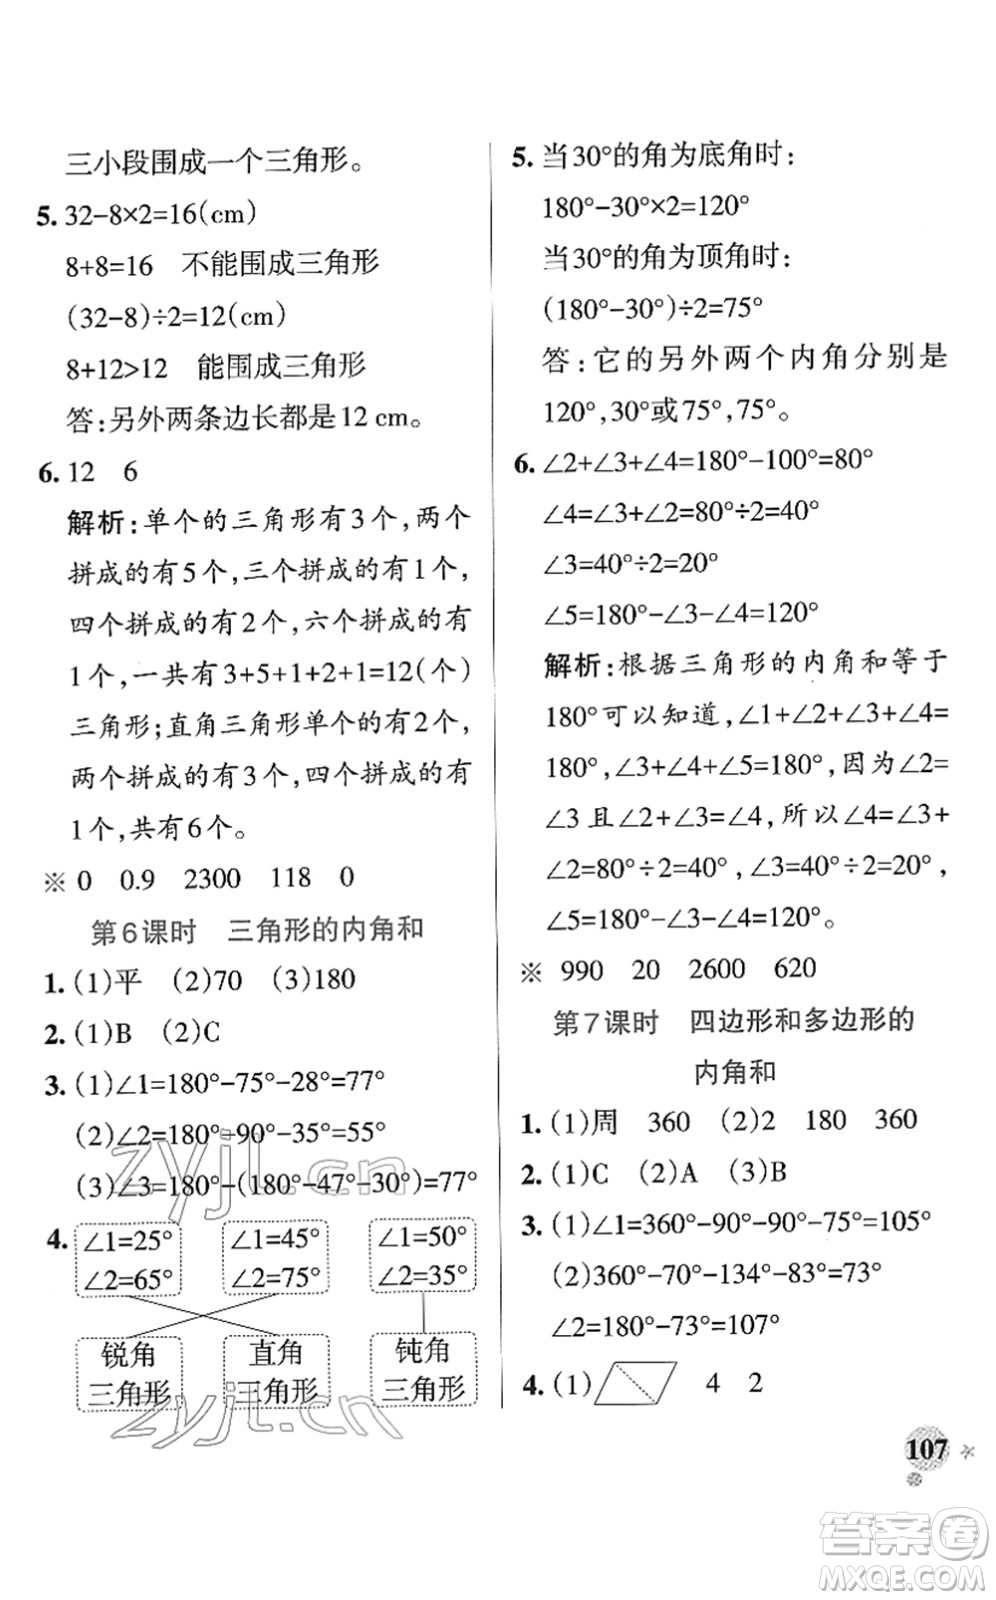 三小段围成一个三角形。
5. 32-8×2=16(cm)
8+8=16 不能围成三角形
(32-8)÷2=12(cm)
8+12>12 能围成三角形
答:另外两条边长都是12 cm。
6. 12 6
解析:单个的三角形有3个,两个
拼成的有5个,三个拼成的有1个,
四个拼成的有2个,六个拼成的有
1个,一共有3+5+1+2+1=12(个)
三角形;直角三角形单个的有2个,
两个拼成的有3个,四个拼成的有
1个,共有6个。
※ 0 0.9 2300 118 0
第6课时 三角形的内角和
1. (1)平 (2)70 (3)180
2. (1)B (2)C
3. (1)∠1=180°-75°-28°=77°
(2)∠2=180°-90°-35°=55°
(3)∠3=180°-(180°-47°-30°)=77°
4. ∠1=25° ∠1=45° ∠1=50°
∠2=65° ∠2=75° ∠2=35°
锐角 直角 钝角
三角形 三角形 三角形
5. 当30°的角为底角时:
180°-30°×2=120°
当30°的角为顶角时:
(180°-30°)÷2=75°
答:它的另外两个内角分别是
120°,30°或75°,75°。
6. ∠2+∠3+∠4=180°-100°=80°
∠4=∠3+∠2=80°÷2=40°
∠3=40°÷2=20°
∠5=180°-∠3-∠4=120°
解析:根据三角形的内角和等于
180°可以知道,∠1+∠2+∠3+∠4=
180°,∠3+∠4+∠5=180°,因为∠2=
∠3且∠2+∠3=∠4,所以∠4=∠3+
∠2=80°÷2=40°,∠3=40°÷2=20°,
∠5=180°-∠3-∠4=120°。
※ 990 20 2600 620
第7课时 四边形和多边形的
内角和
1. (1)周 360 (2)2 180 360
2. (1)C (2)A (3)B
3. (1)∠1=360°-90°-90°-75°=105°
(2)360°-70°-134°-83°=73°
∠2=180°-73°=107°
4. (1) 4 2
107
zyjl.cn
zyjl.cn
答案卷
MXQE.COM